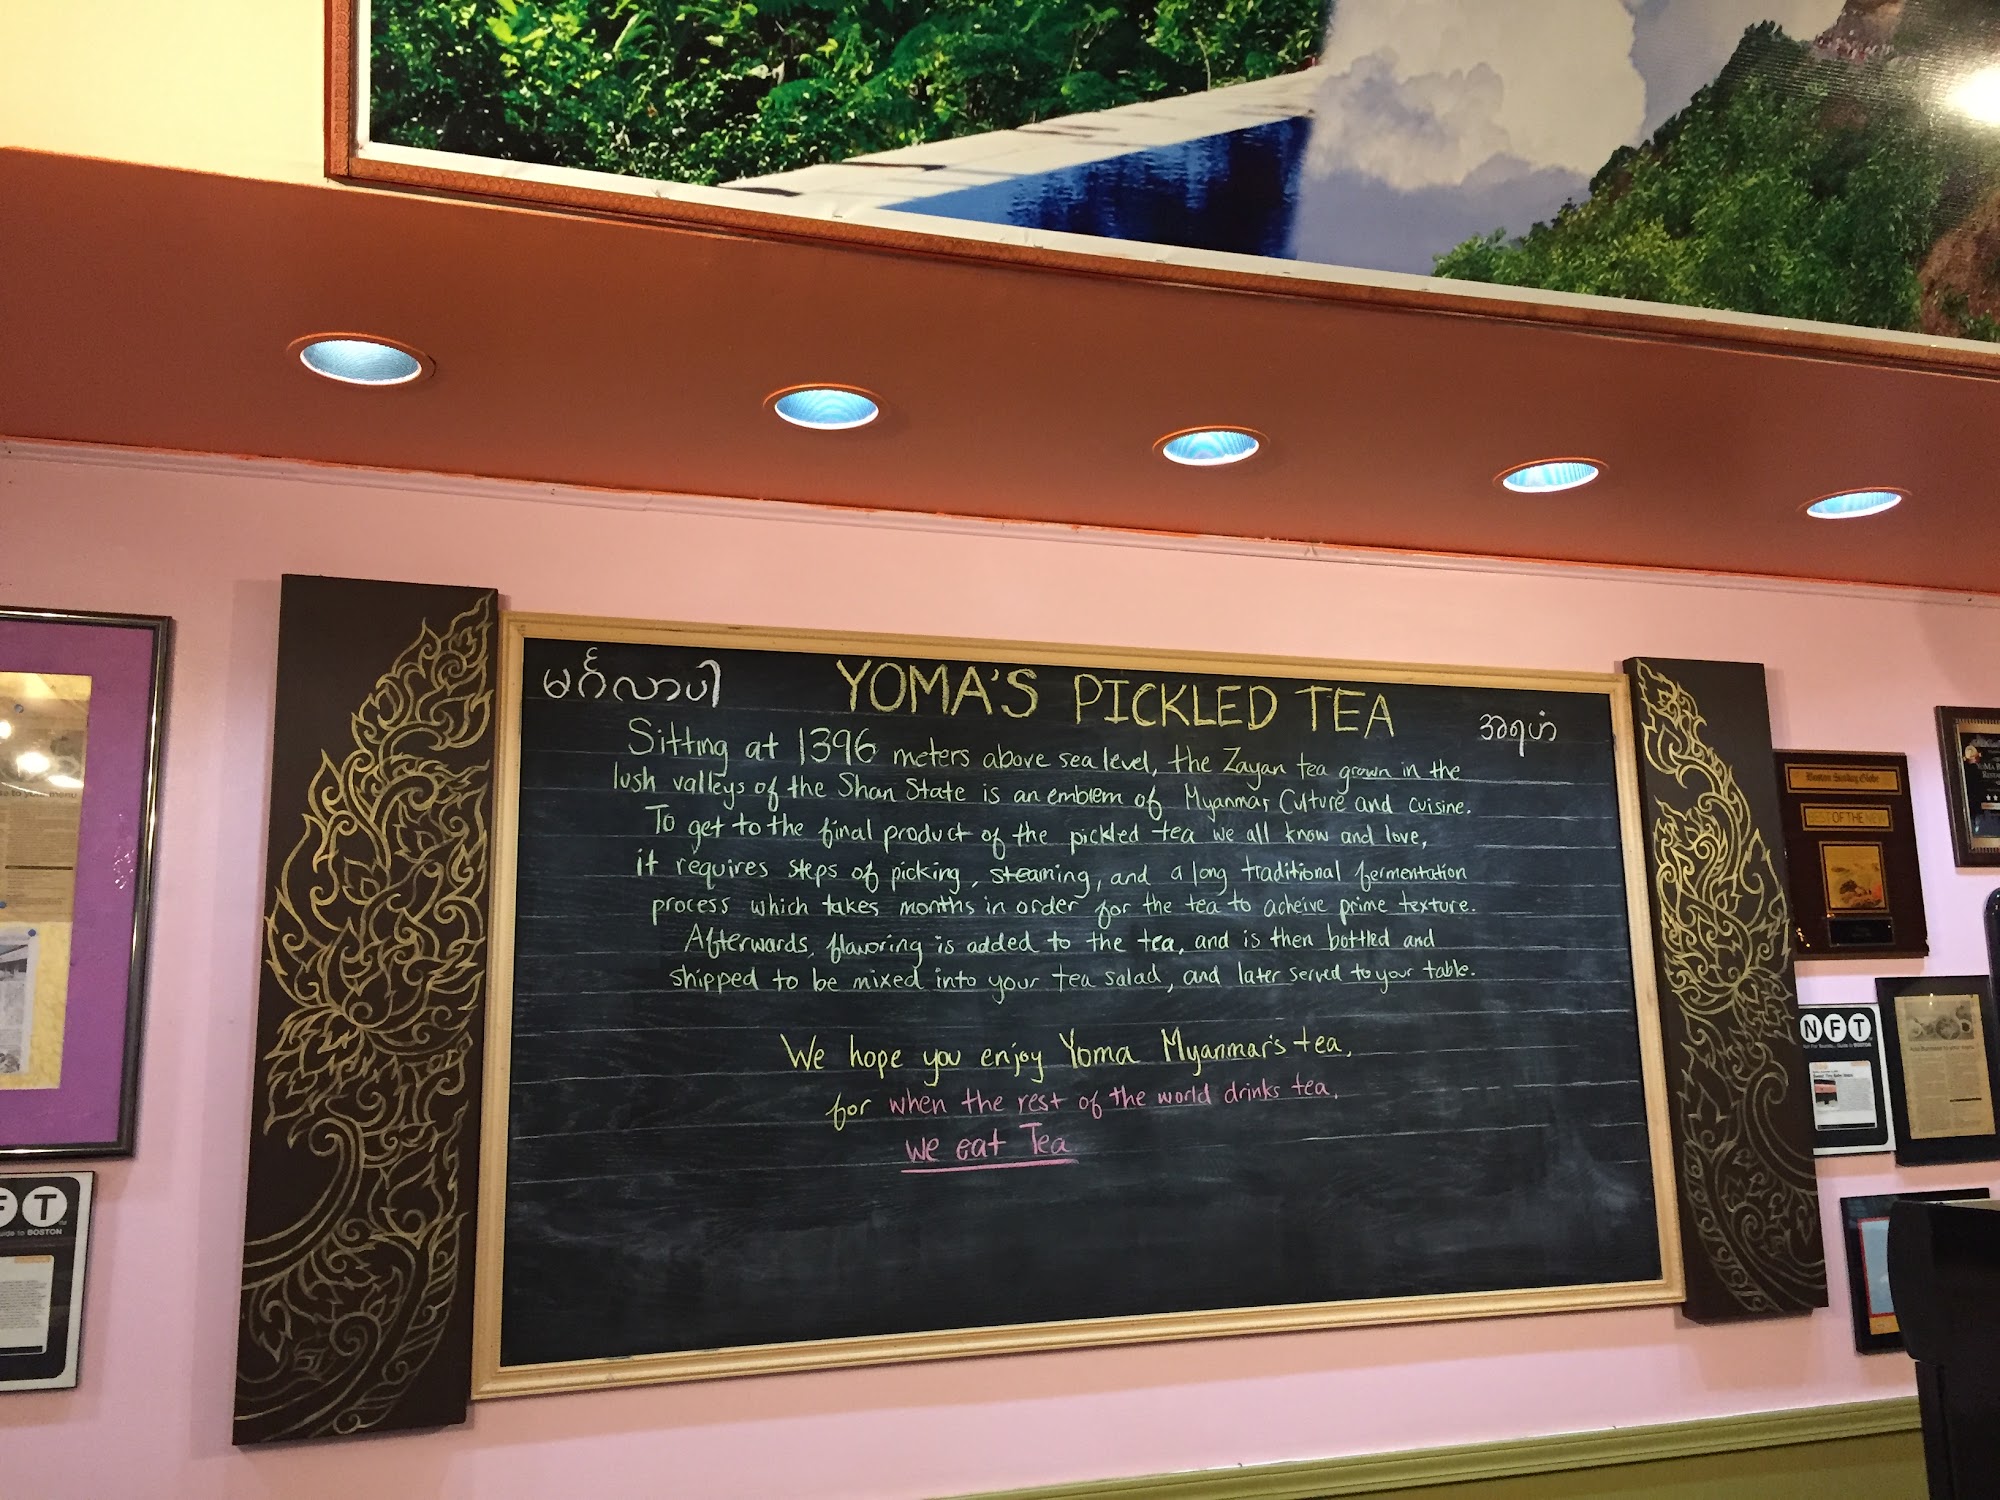 မင်္ဂလာပါ
YOMA'S PICKLED TEA
Sitting at 1396 meters above sea level, the Zayan tea grown in the
lush valleys of the Shan State is an emblem of Myanmar Culture and cuisine.
To get to the final product of the pickled tea we all know and love,
it requires steps of picking, steaming, and a long traditional fermentation
process which takes months in order for the tea to acheive prime texture.
Afterwards, flavoring is added to the tea, and is then bottled and
shipped to be mixed into your tea salad, and later served to your table.
We hope you enjoy Yoma Myanmar's tea,
for when the rest of the world drinks tea,
we eat Tea
Boston Sunday Globe
BEST OF THE NEW
NFT
FT
Guide to BOSTON